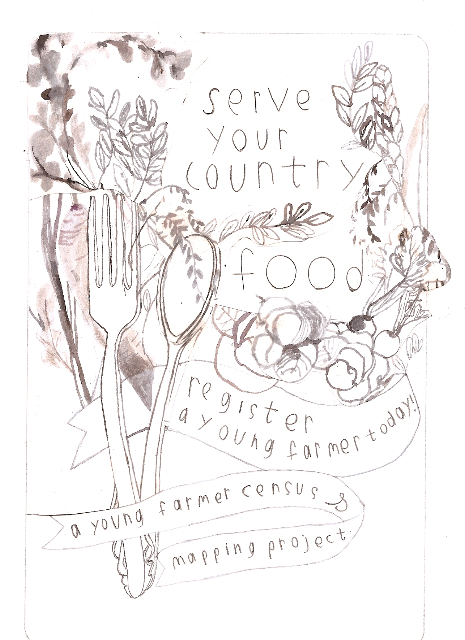 serve
your
country
food
register
a young farmer today!
a young farmer census &
mapping project